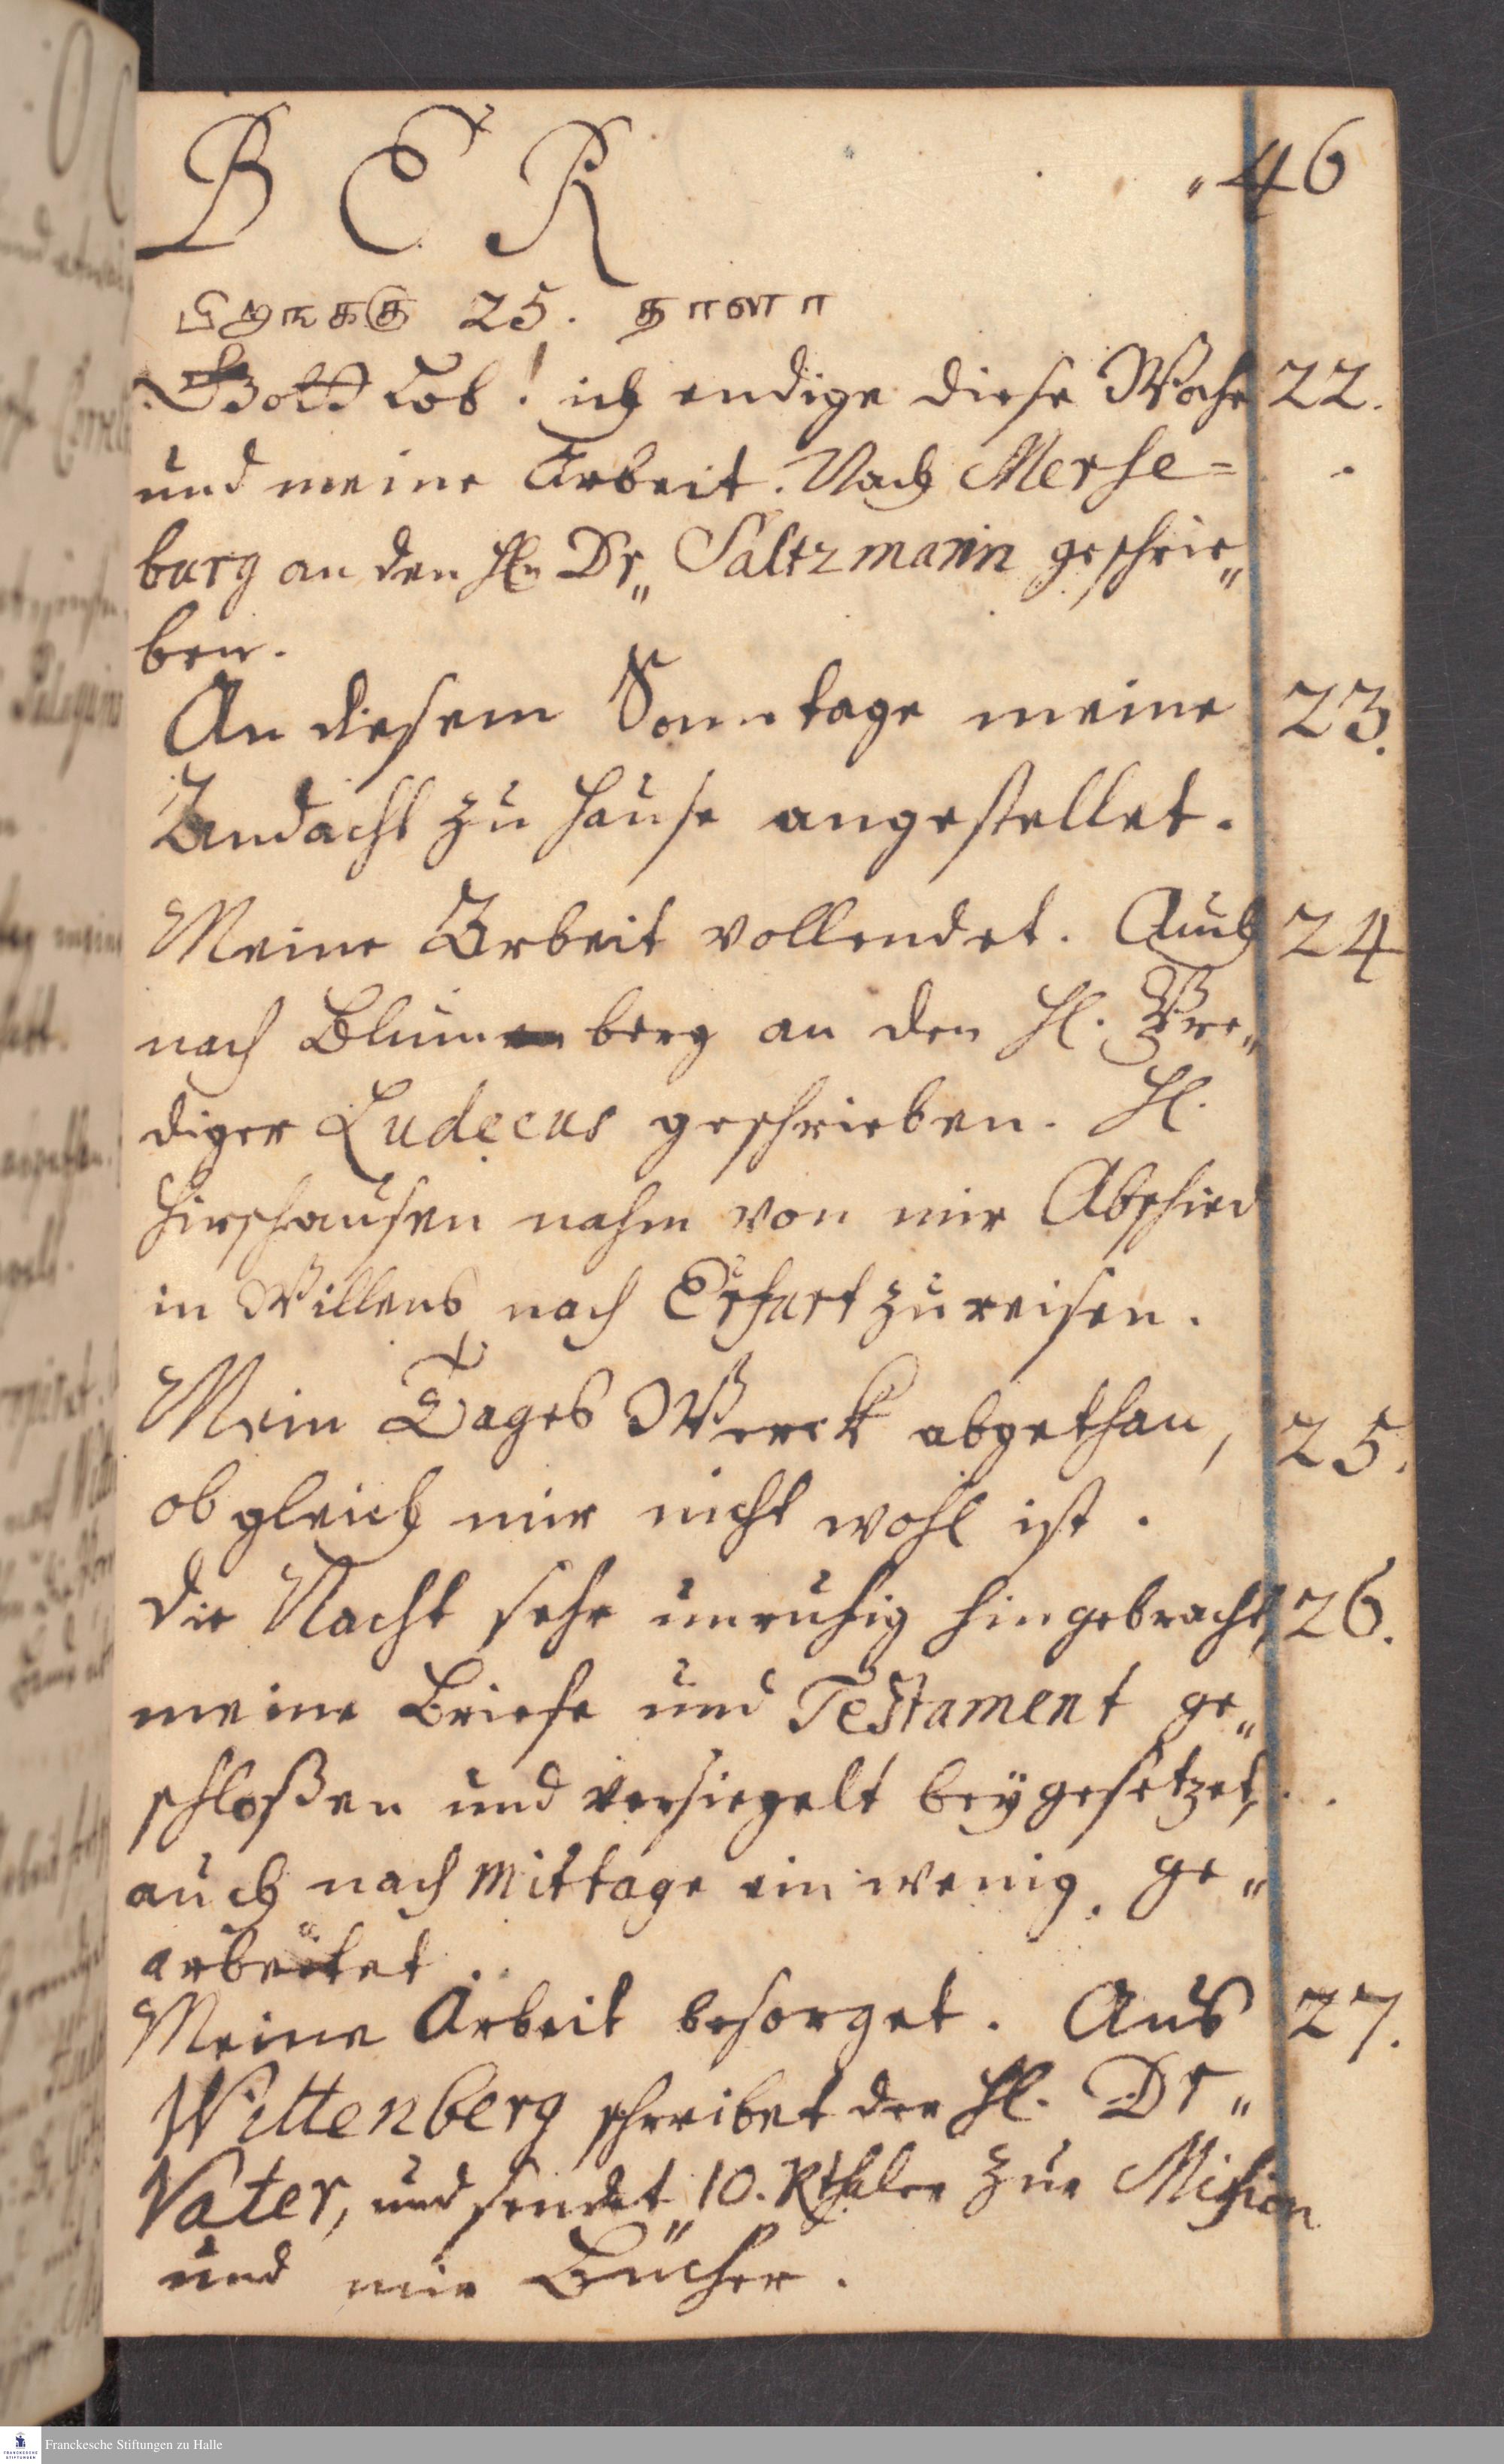 B E R
46
25.
Gott Lob! ich endige diese Woche 22.
und meine Arbeit. Nach Merse=
burg an den Hln Dr„ Saltzmann geschrie„
ben.
An diesem Sonntage meine 23.
Andacht zu Hause angestellet.
Meine Arbeit vollendet. Auch 24
nach Blumberg an den Hl. Pre„
diger Ludecus geschrieben. Hl.
Hirschausen nahm von mir Abschied
in Willens nach Erfurt zu reisen.
Mein Tages Werck abgethan, 25.
ob gleich mir nicht wohl ist.
Die Nacht sehr unruhig hingebracht, 26.
meine Briefe und Testament ge„
schloßen und versiegelt beÿgesetzet,
auch nach Mittage ein wenig ge„
arbeitet.
Meine Arbeit besorget. Aus 27.
Wittenberg schreibet der Hl. Dr„
Vater, und sendet 10. Rthaler zur Mission
und mir Bücher.
Franckesche Stiftungen zu Halle